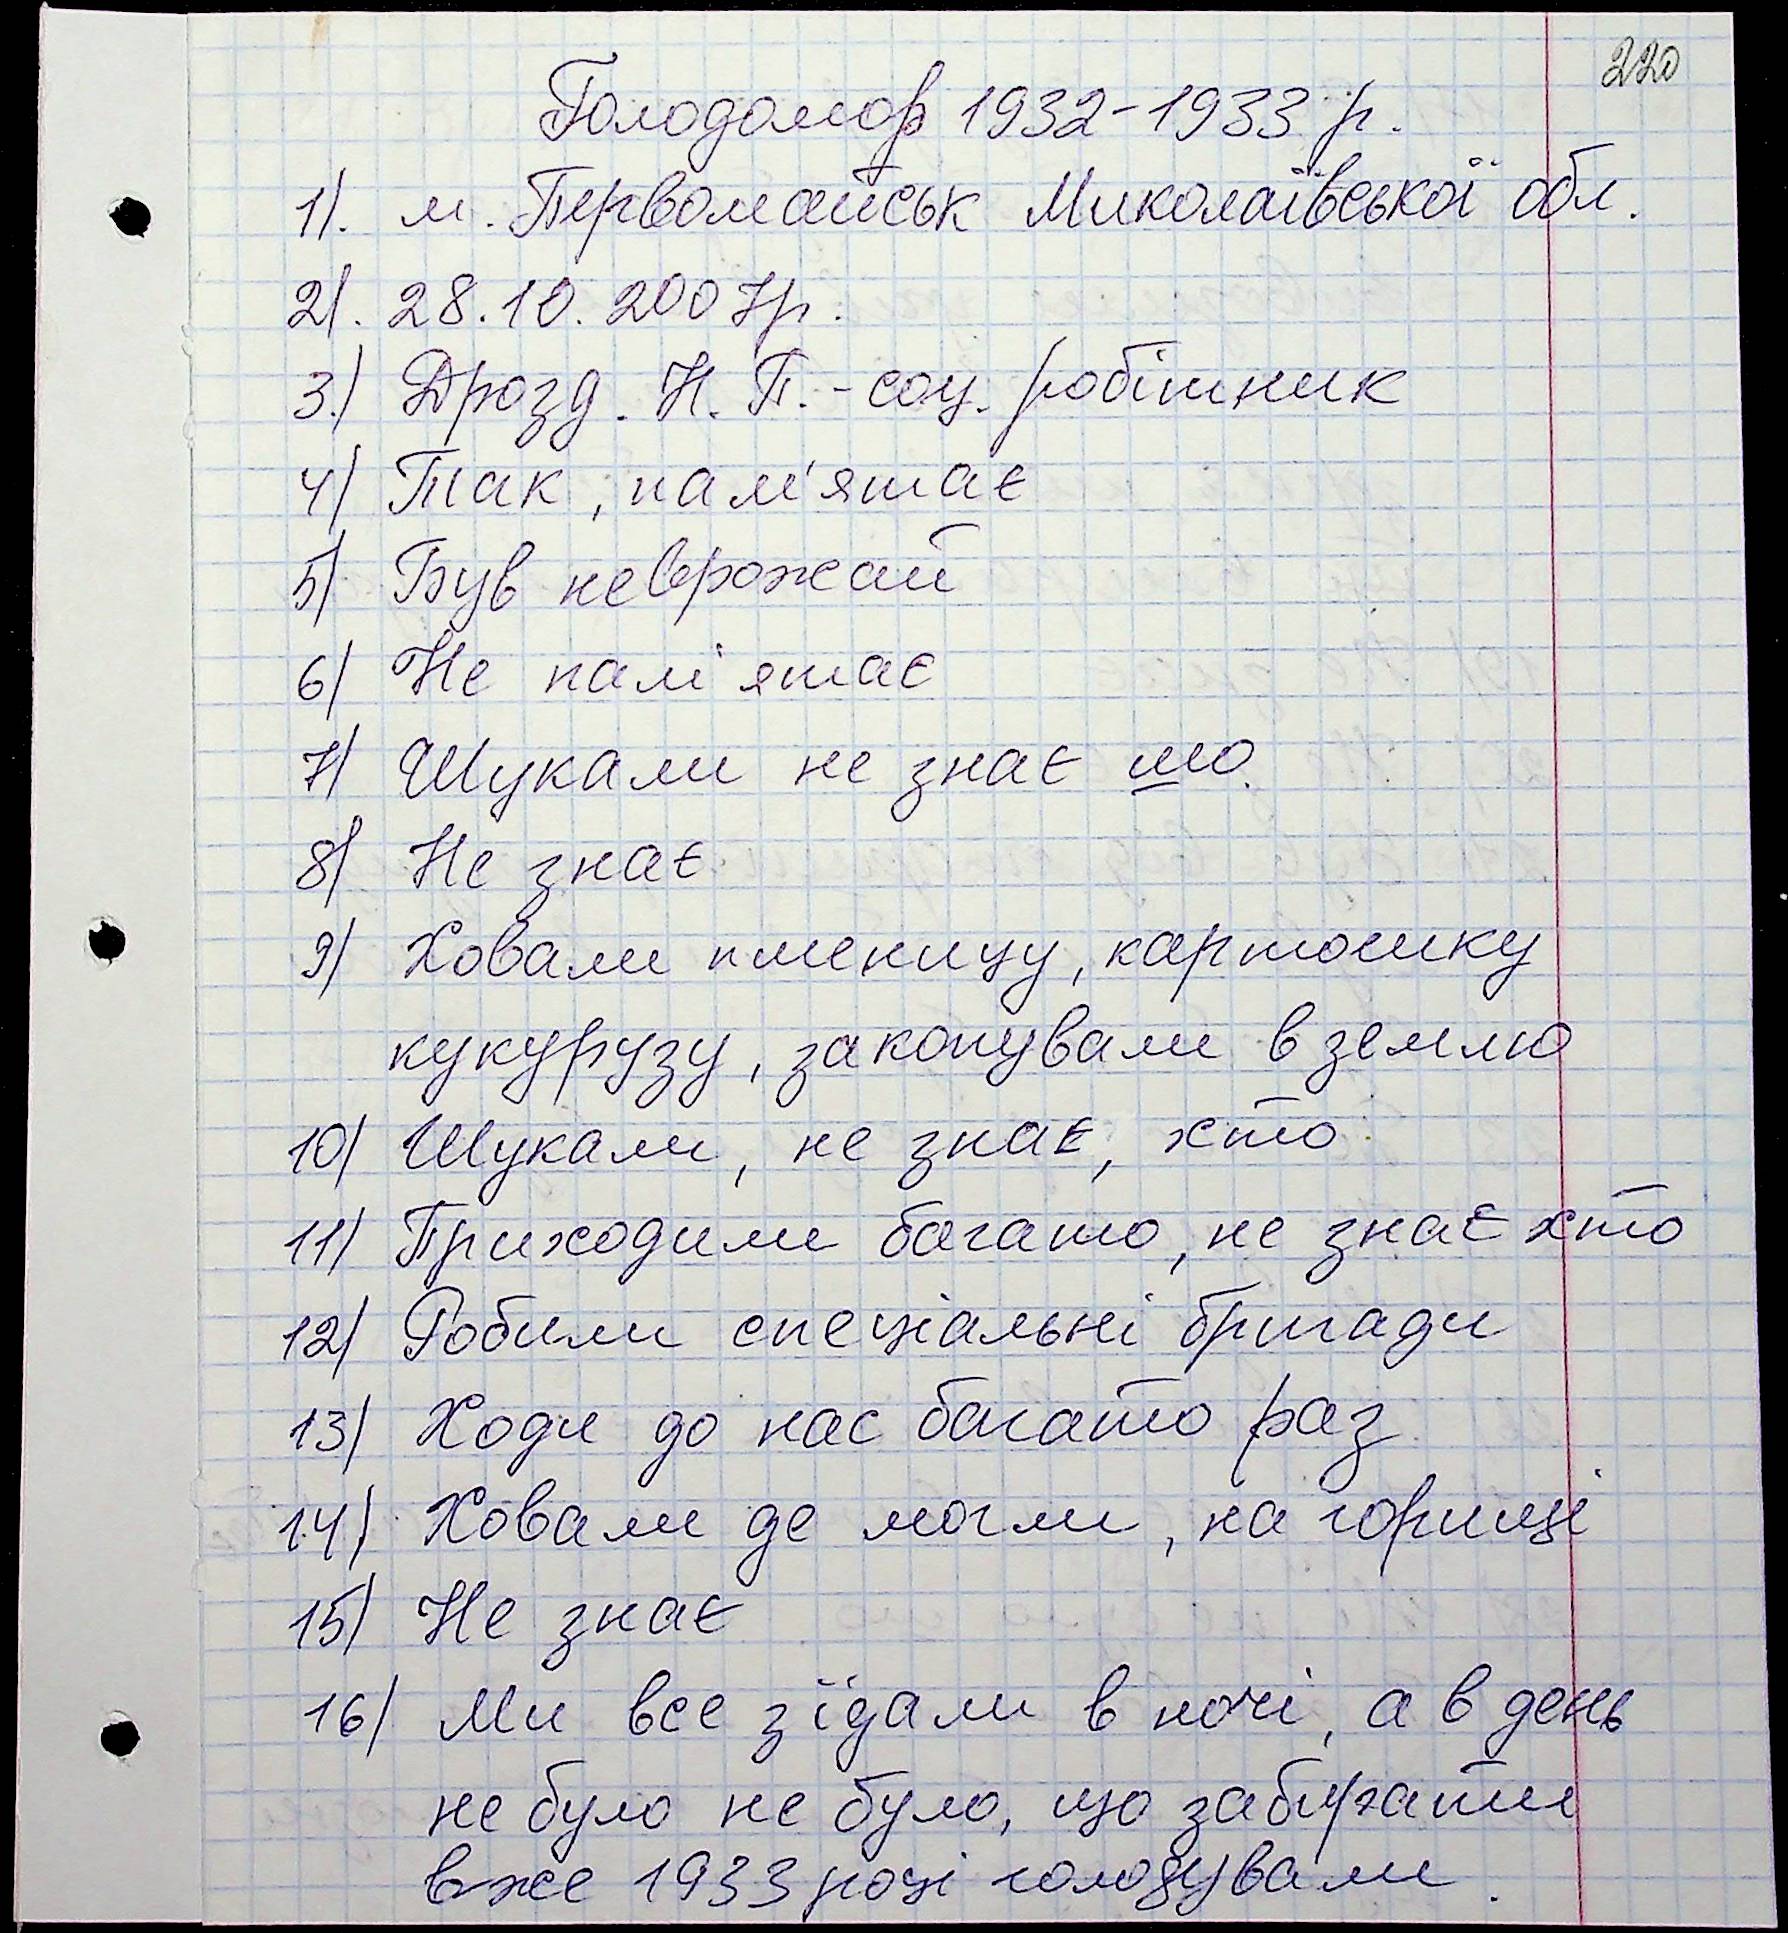 220
Голодомор 1932-1933 р.
1). м. Первомайськ Миколаївської обл.
2). 28.10.2007р.
3.) Дрозд. Н. П. - соц. робітник
4) Так, пам'ятає
5) Був неврожай
6) Не пам'ятає
7) Шукали не знає що.
8) Не знає
9) Ховали пшеницу, картошку
кукурузу, закопували в землю
10) Шукали, не знає, хто
11) Приходили багато, не знає хто
12) Робили спеціальні бригади
13) Ходи до нас багато раз
14) Ховали де могли, на горищі
15) Не знає
16) Ми все зїдали в ночі, а в день
не було не було, що забирати
вже 1933 році голодували.